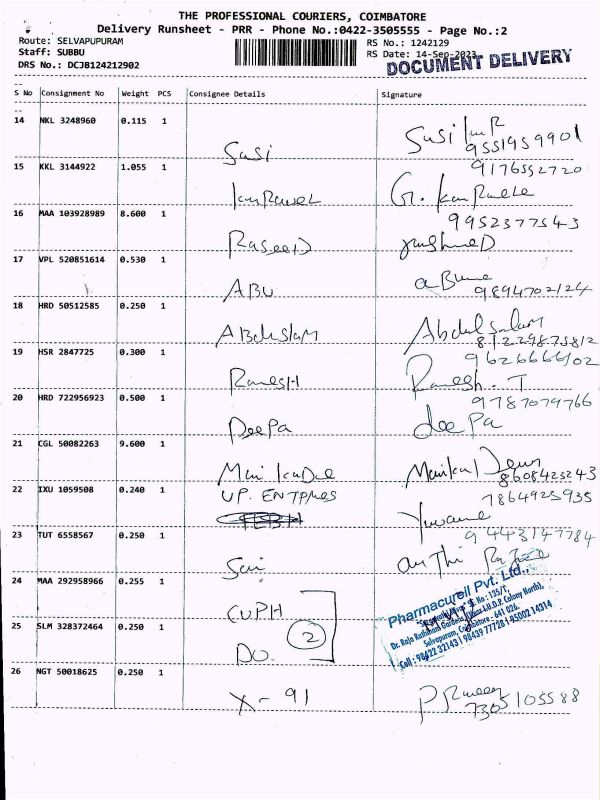 THE PROFESSIONAL COURIERS, COIMBATORE
Delivery Runsheet - PRR - Phone No.:0422-3505555 - Page No.:2
Route: SELVAPUPURAM
RS No.: 1242129
Staff: SUBBU
RS Date: 14-Sep-2023
DRS No.: DCJB124212902
DOCUMENT DELIVERY
S No Consignment No Weight PCS Consignee Details Signature
14 NKL 3248960 0.115 1 Sasi
9551959901
15 KKL 3144922 1.055 1
9176552720
16 MAA 103928989 8.600 1 RaseeD
9952377543
17 VPL 520851614 0.530 1 ABU
9894702124
18 HRD 50512585 0.250 1 Abdulsalam
19 HSR 2847725 0.300 1 RamesH Ramesh. T
20 HRD 722956923 0.500 1 DeePa deePa
9787079766
21 CGL 50082263 9.600 1
8608423243
22 IXU 1059508 0.240 1
7864925935
23 TUT 6558567 0.250 1 Sai
9443147784
24 MAA 292958966 0.255 1 CUPH
25 SLM 328372464 0.250 1 DO. 2
Pharmacureil Pvt. Ltd.,
Selvapuram, Coimbatore - 641 026.
Cell : 98422 32143 | 98439 77728 | 95002 14314
26 NGT 50018625 0.250 1 X - 91
7305105588